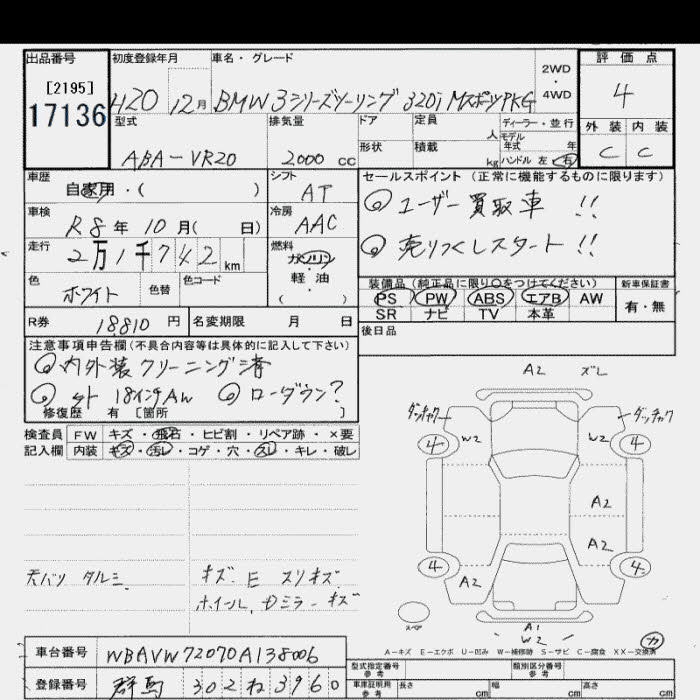 出品番号 初度登録年月 車名・グレード 2WD・4WD 評価点
[2195]
17136 H20 12月 BMW 3シリーズツーリング 320i MスポーツPKG 4
型式 排気量 ドア 定員 人 ディーラー・並行 外装 内装
ABA-VR20 2000 cc 形状 積載 kg モデル年式 年 ハンドル 左・右 C C
車歴 自家用・( ) シフト AT セールスポイント(正常に機能するものに限ります)
車検 R8年 10月( 日) 冷房 AAC ◎ユーザー買取車!!
走行 2万1千742km 燃料 ガソリン 軽・油 ( ) ◎売りつくしスタート!!
色 ホワイト 色替 色コード
装備品(純正品に限り○をつけてください) 新車保証書
PS PW ABS エアB AW 有・無
SR ナビ TV 本革
R券 18810円 名変期限 月 日 後日品
注意事項申告欄(不具合内容等は具体的に記入して下さい)
◎内外装クリーニング済
◎外18インチAW ◎ローダウン?
修復歴 有 〔箇所 〕
検査員 FW キズ・飛石・ヒビ割・リペア跡・×要
記入欄 内装 キズ・汚レ・コゲ・穴・スレ・キレ・破レ
A2 ズレ
4 W2 W2 4
A2
A2
4 A2 4
天バリ タルミ キズ E スリキズ
ホイール、Dミラーキズ
スペア
A1
W2
カ
A-キズ E-エクボ U-凹み W-補修跡 S-サビ C-腐食 XX-交換済
車台番号 WBAVW72070A138006
登録番号 群馬 302 ね 3960
型式指定番号 参考 類別区分番号 参考
車庫証明用 参考 長さ cm 幅 cm 高さ cm